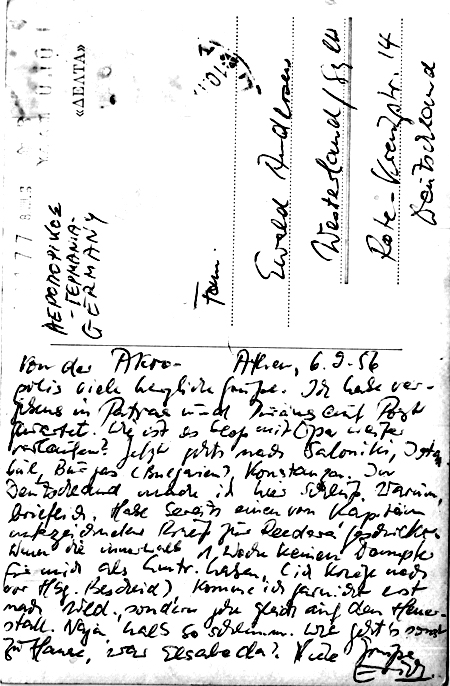 «ΔΕΛΤΑ»
ΑΕΡΟΠΟΡΙΚΟΣ
-ΓΕΡΜΑΝΙΑ-
GERMANY
Fam.
Ewald
Westerland/Sylt
Rote-Kreuzstr. 14
Deutschland
Von der Akro- Athen, 6.9.56
polis viele herzliche Grüße. Ich habe ver-
gebens in Patras und Piräus auf Post
gewartet. Wie ist es bloß mit Opa weiter
verlaufen? Jetzt geht's nach Saloniki, Istan
bul, Burgas (Bulgarien), Konstanza. In
Deutschland mache ich hier Schluß. Warum,
brieflich. Habe bereits einen vom Kapitän
unterzeichneten Brief für Reederei geschickt.
Wenn die innerhalb 1 Woche keinen Dampfer
für mich als haben, (ich kriege noch
vor Hbg. Bescheid), komme ich garnicht erst
nach Sild, sondern gehe gleich auf den Heuer-
stall. Naja, halb so schlimm. Wie geht's sonst
zu Hause, was Viele Grüße